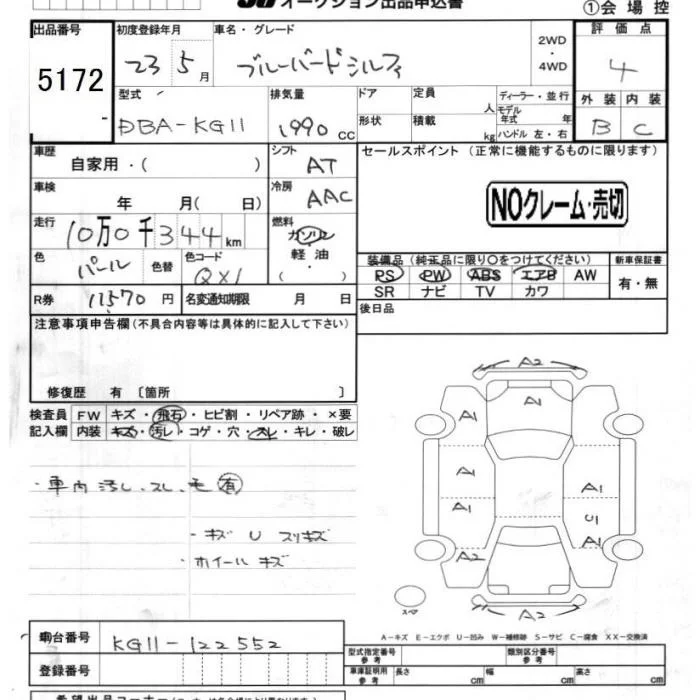 オークション出品申込書
①会場控
出品番号 初度登録年月 車名・グレード 評価点
5172 23 5月 ブルーバードシルフィ 2WD・4WD 4
型式 排気量 ドア 定員 人 ディーラー・並行 外装 内装
DBA-KG11 1990 CC 形状 積載 kg モデル年式 年 ハンドル 左・右 B C
車歴 自家用・( ) シフト AT セールスポイント (正常に機能するものに限ります)
車検 年 月( 日) 冷房 AAC
NOクレーム・売切
走行 10万0千344km 燃料 ガソリン 軽油 ( )
色 パール 色替 色コード QX1
装備品 (純正品に限り○をつけてください) 新車保証書
PS PW ABS エアB AW 有・無
SR ナビ TV カワ
R券 11570円 名変通知期限 月 日
後日品
注意事項申告欄(不具合内容等は具体的に記入して下さい)
修復歴 有 〔箇所 〕
検査員 FW キズ・飛石・ヒビ割・リペア跡・×要
記入欄 内装 キズ・汚レ・コゲ・穴・スレ・キレ・破レ
・車内汚レ、スレ、モ有
・キズ U スリキズ
・ホイールキズ
A2
A1 A1
A1 A1
A1 U1
A2 A1
A2
スペア
A-キズ E-エクボ U-凹み W-補修跡 S-サビ C-腐食 XX-交換済
車台番号 KG11-122552
型式指定番号 参考 類別区分番号 参考
登録番号
車庫証明用 参考 長さ cm 幅 cm 高さ cm